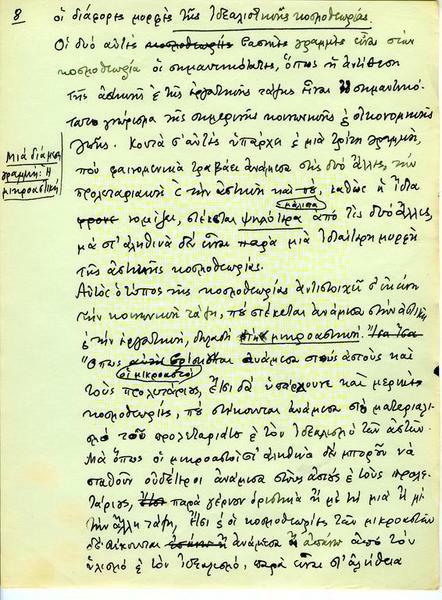 8 οἱ διάφορες μορφὲς τῆς ἰδεαλιστικῆς κοσμοθεωρίας.
Οἱ δυὸ αὐτὲς βασικὲς γραμμὲς εἶναι στὴν
κοσμοθεωρία οἱ σημαντικότατες, ὅπως ἡ ἀντίθεση
τῆς ἀστικῆς κ τῆς ἐργατικῆς τάξης εἶναι τὸ σημαντικό-
τατο γνώρισμα τῆς σημερινῆς κοινωνικῆς κ οἰκονομικῆς
ζωῆς. Κοντὰ σ' αὐτὲς ὑπάρχει κ μιὰ τρίτη γραμμή,
Μιὰ διάμεση
γραμμή: ἡ
μικροαστική
ποὺ φαινομενικὰ τραβάει ἀνάμεσα στὶς δυὸ ἄλλες, τὴν
προλεταριακὴ κ τὴν ἀστικὴ καὶ, καθὼς ἡ ἴδια
μάλιστα
νομίζει, στέκεται ψηλότερα ἀπὸ τὶς δυὸ ἄλλες,
μὰ στ' ἀληθινὰ δὲν εἶναι παρὰ μιὰ ἰδιαίτερη μορφὴ
τῆς ἀστικῆς κοσμοθεωρίας.
Αὐτὸς ὁ τύπος τῆς κοσμοθεωρίας ἀντιστοιχεῖ σ' ἐκείνη
τὴν κοινωνικὴ τάξη, ποὺ στέκεται ἀνάμεσα στὴν ἀστικὴ
κ τὴν ἐργατική, δηλαδὴ στὴ μικροαστική.
Ὅπως βρίσκονται ἀνάμεσα στοὺς ἀστοὺς καὶ
οἱ μικροαστοὶ
τοὺς προλετάριους, ἔτσι θὰ ὑπάρχουνε καὶ μερικὲς
κοσμοθεωρίες, ποὺ στέκονται ἀνάμεσα στὸ ματεριαλι-
σμὸ τοῦ προλεταριάτου κ τὸν ἰδεαλισμὸ τῶν ἀστῶν.
Μὰ ὅπως οἱ μικροαστοὶ στ' ἀληθινὰ δὲν μποροῦν νὰ
σταθοῦν οὐδέτεροι ἀνάμεσα στοὺς ἀστοὺς κ τοὺς προλε-
τάριους, παρὰ γέρνουν ὁριστικὰ ἢ μὲ τὴ μιὰ ἢ μὲ
τὴν ἄλλη τάξη, ἔτσι κ οἱ κοσμοθεωρίες τῶν μικροαστῶν
δὲ στέκονται ἀνάμεσα ἢ ἀπάνω ἀπὸ τὸν
ὑλισμὸ κ τὸν ἰδεαλισμό, παρὰ εἶναι στ' ἀλήθεια